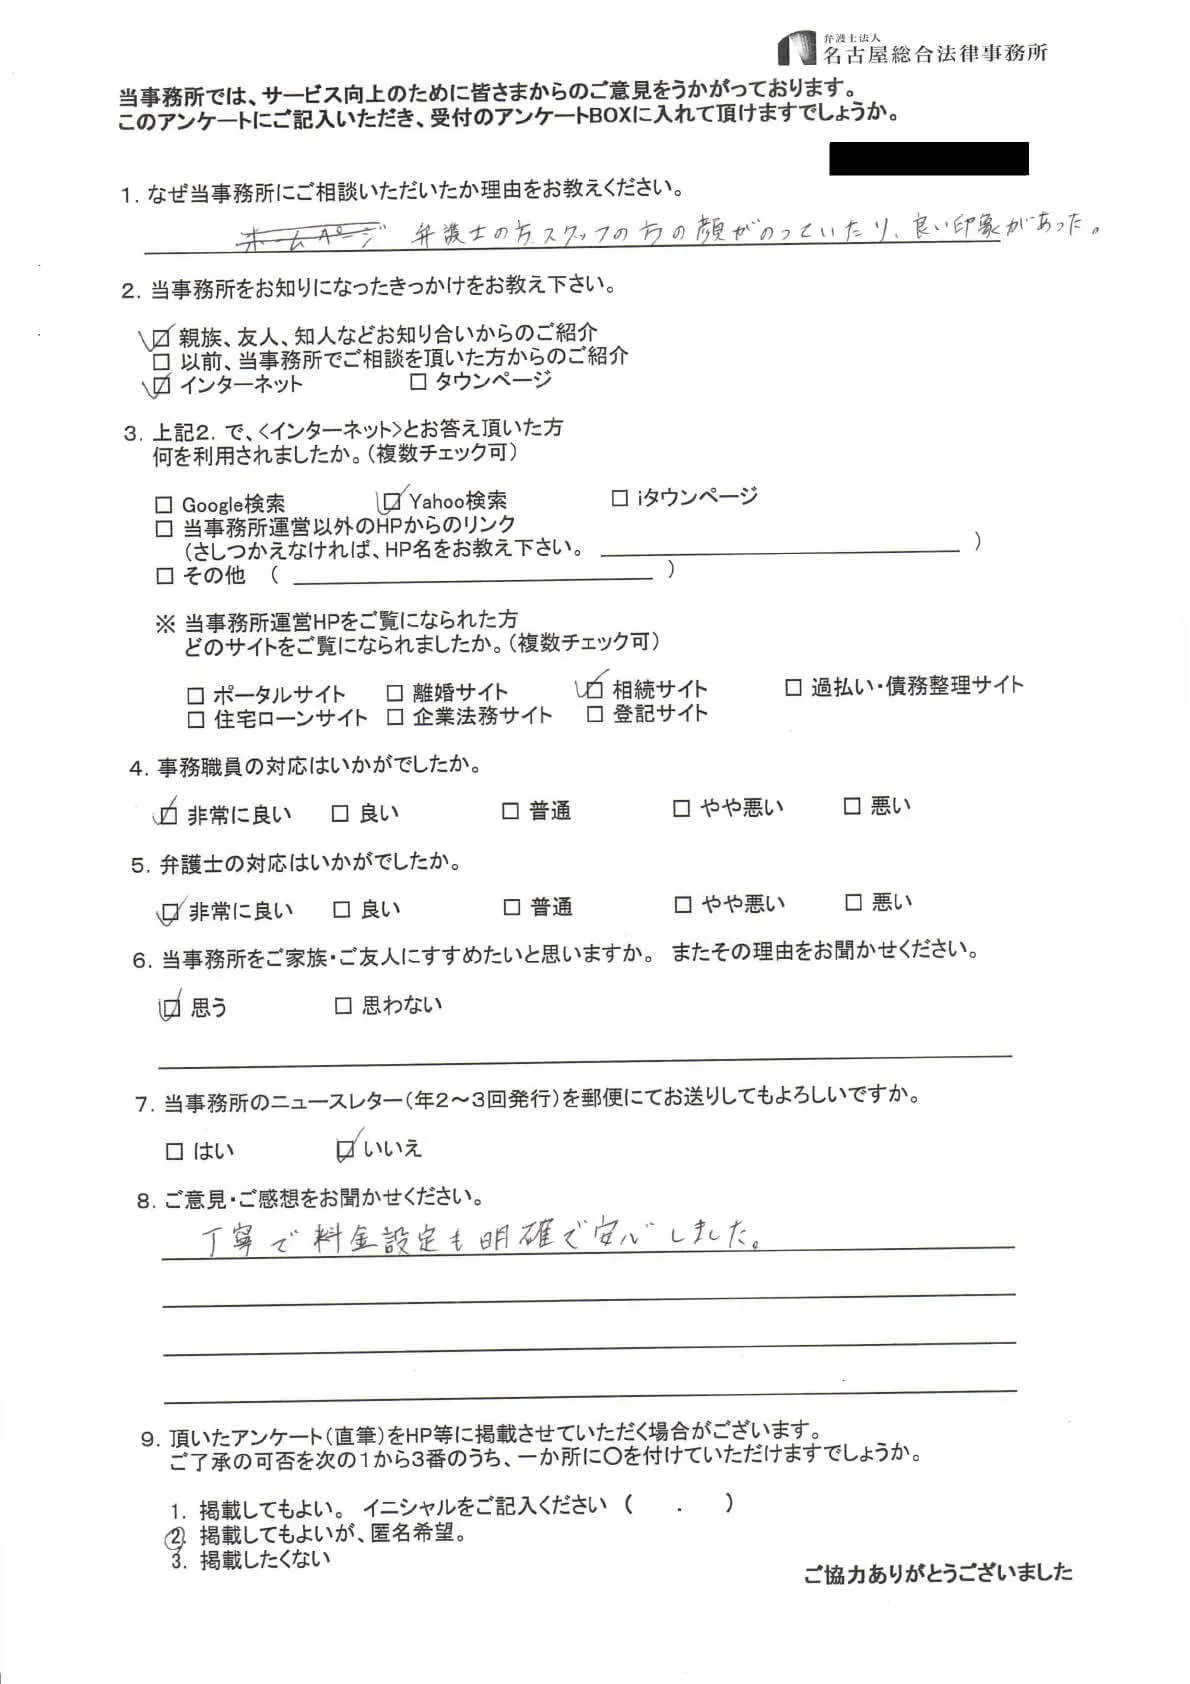 弁護士法人
名古屋総合法律事務所
当事務所では、サービス向上のために皆さまからのご意見をうかがっております。
このアンケートにご記入いただき、受付のアンケートBOXに入れて頂けますでしょうか。
1. なぜ当事務所にご相談いただいたか理由をお教えください。
ホームページ 弁護士の方、スタッフの方の顔がのっていたり、良い印象があった。
2. 当事務所をお知りになったきっかけをお教え下さい。
☑ 親族、友人、知人などお知り合いからのご紹介
□ 以前、当事務所でご相談を頂いた方からのご紹介
☑ インターネット □ タウンページ
3. 上記2. で、<インターネット>とお答え頂いた方
何を利用されましたか。(複数チェック可)
□ Google検索 ☑ Yahoo検索 □ iタウンページ
□ 当事務所運営以外のHPからのリンク
(さしつかえなければ、HP名をお教え下さい。 )
□ その他 ( )
※ 当事務所運営HPをご覧になられた方
どのサイトをご覧になられましたか。(複数チェック可)
□ ポータルサイト □ 離婚サイト ☑ 相続サイト □ 過払い・債務整理サイト
□ 住宅ローンサイト □ 企業法務サイト □ 登記サイト
4. 事務職員の対応はいかがでしたか。
☑ 非常に良い □ 良い □ 普通 □ やや悪い □ 悪い
5. 弁護士の対応はいかがでしたか。
☑ 非常に良い □ 良い □ 普通 □ やや悪い □ 悪い
6. 当事務所をご家族・ご友人にすすめたいと思いますか。 またその理由をお聞かせください。
☑ 思う □ 思わない
7. 当事務所のニュースレター(年2~3回発行)を郵便にてお送りしてもよろしいですか。
□ はい ☑ いいえ
8. ご意見・ご感想をお聞かせください。
丁寧で料金設定も明確で安心しました。
9. 頂いたアンケート(直筆)をHP等に掲載させていただく場合がございます。
ご了承の可否を次の1から3番のうち、一か所に〇を付けていただけますでしょうか。
1. 掲載してもよい。 イニシャルをご記入ください ( . )
②. 掲載してもよいが、匿名希望。
3. 掲載したくない
ご協力ありがとうございました